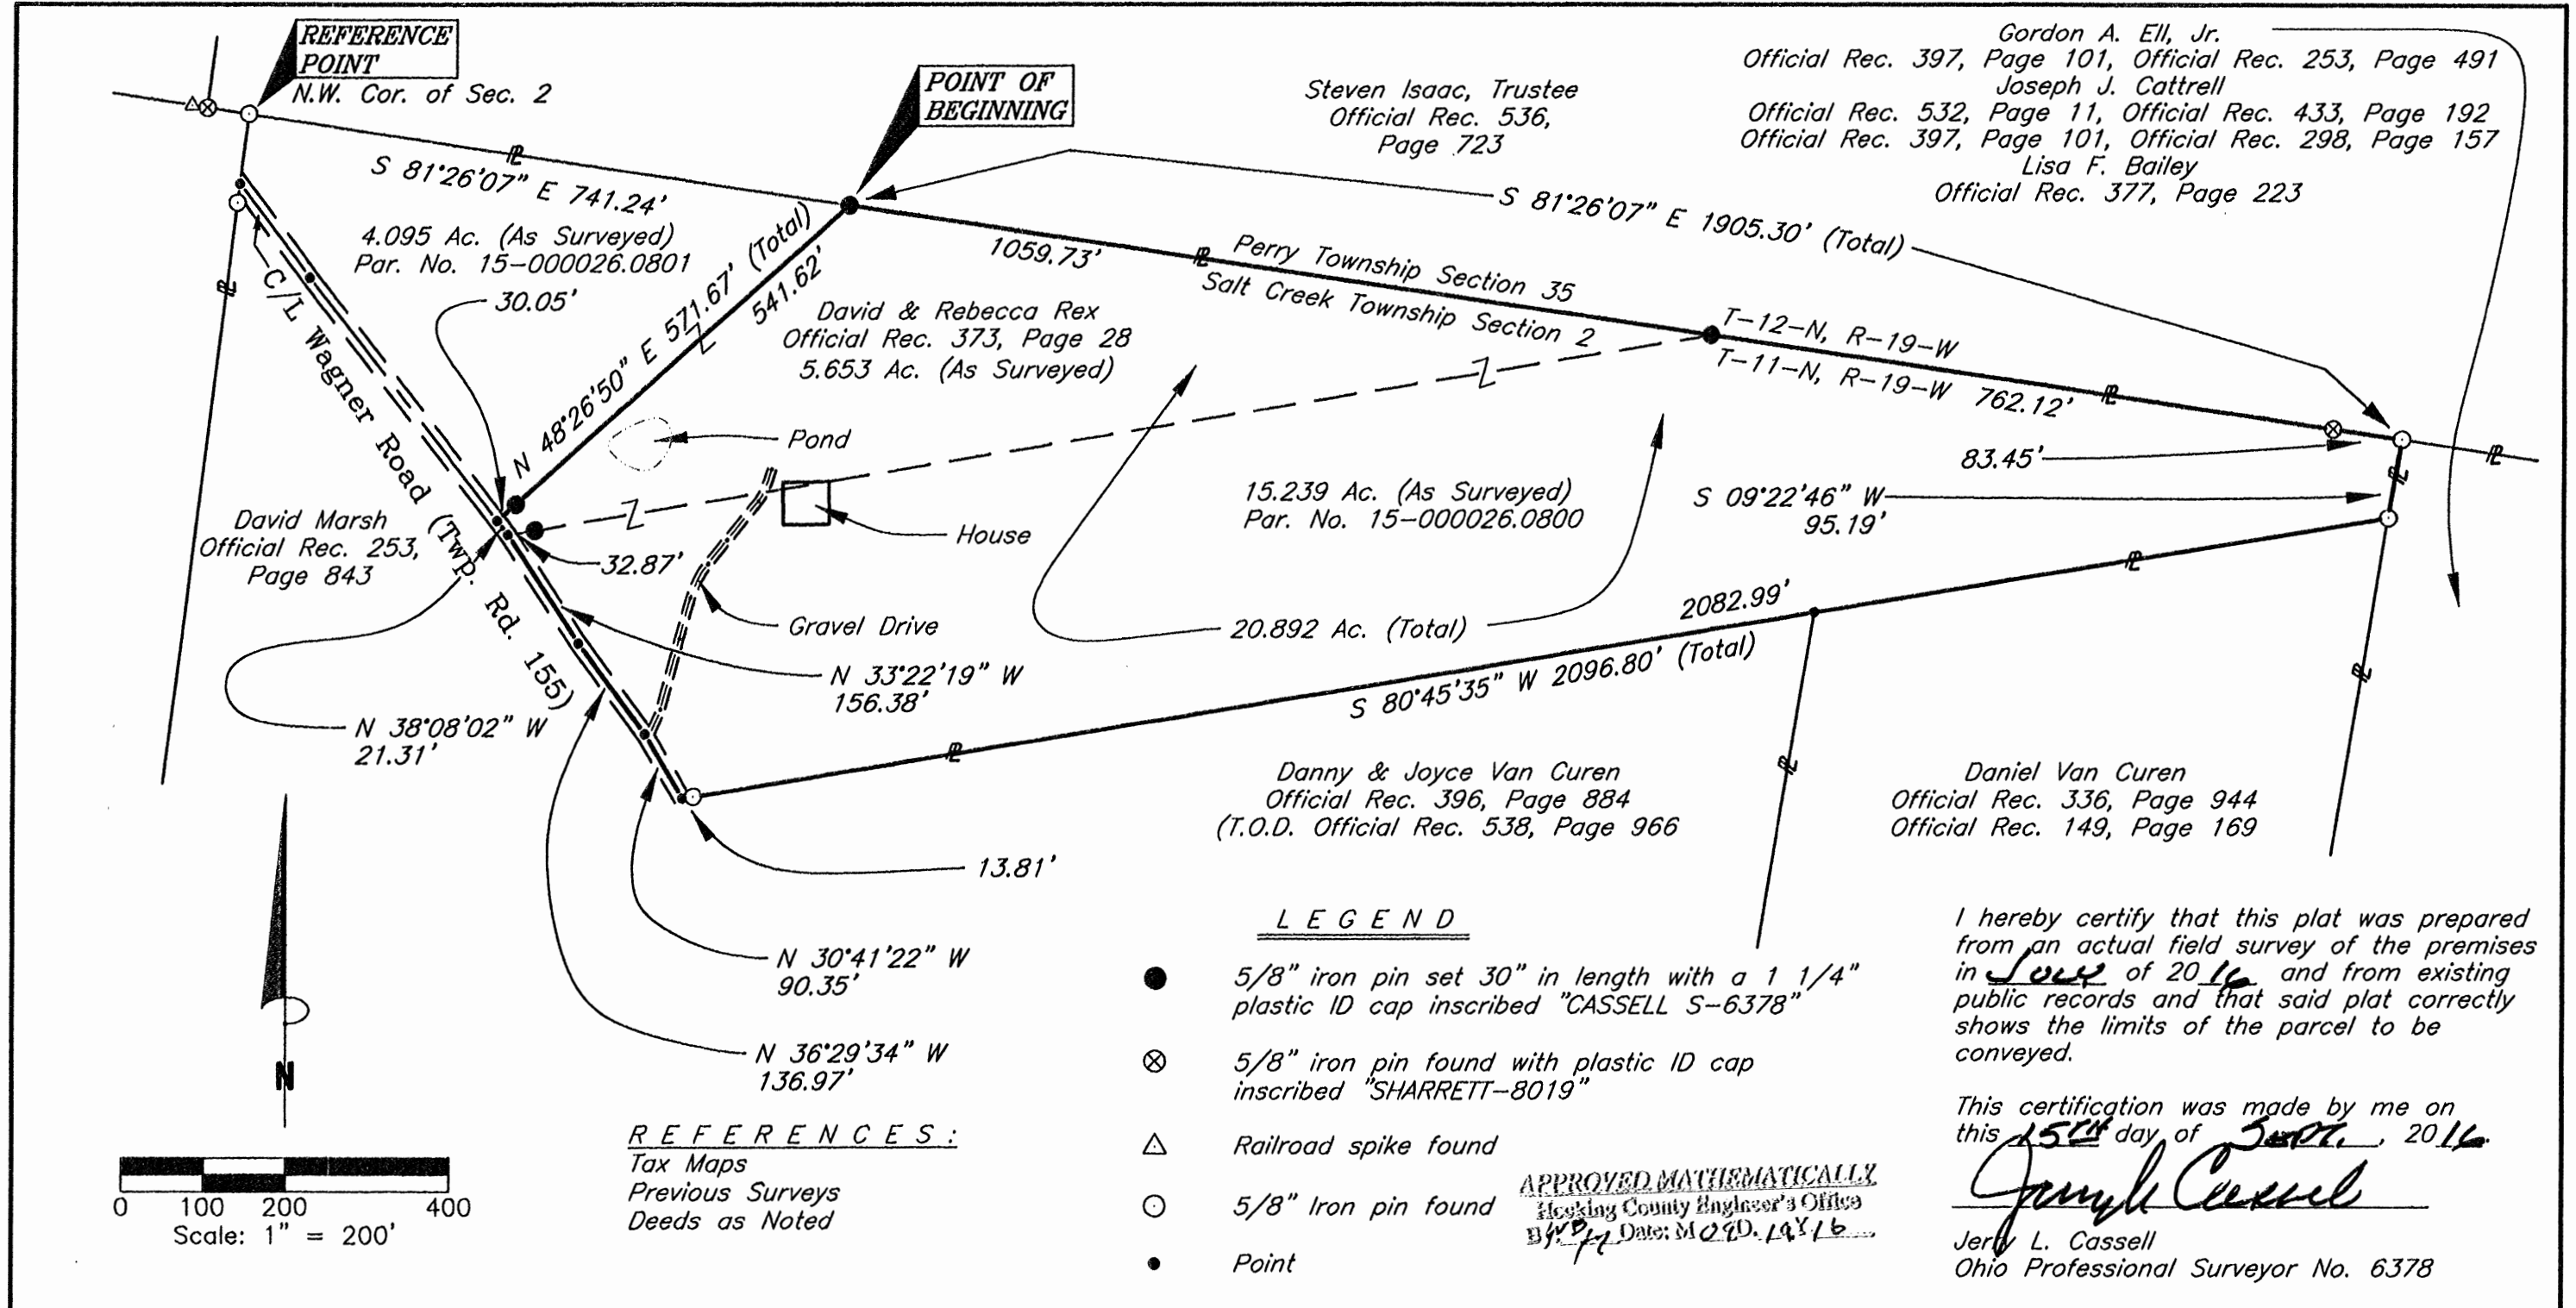 REFERENCE
POINT
N.W. Cor. of Sec. 2
POINT OF
BEGINNING
Steven Isaac, Trustee
Official Rec. 536,
Page 723
Gordon A. Ell, Jr.
Official Rec. 397, Page 101, Official Rec. 253, Page 491
Joseph J. Cattrell
Official Rec. 532, Page 11, Official Rec. 433, Page 192
Official Rec. 397, Page 101, Official Rec. 298, Page 157
Lisa F. Bailey
Official Rec. 377, Page 223
S 81°26'07" E 741.24'
S 81°26'07" E 1905.30' (Total)
4.095 Ac. (As Surveyed)
Par. No. 15-000026.0801
30.05'
N 48°26'50" E 571.67' (Total)
541.62'
1059.73'
Perry Township Section 35
Salt Creek Township Section 2
David & Rebecca Rex
Official Rec. 373, Page 28
5.653 Ac. (As Surveyed)
T-12-N, R-19-W
T-11-N, R-19-W 762.12'
C/L Wagner Road (Twp. Rd. 155)
Pond
83.45'
15.239 Ac. (As Surveyed)
Par. No. 15-000026.0800
S 09°22'46" W
95.19'
House
David Marsh
Official Rec. 253,
Page 843
32.87'
Gravel Drive
20.892 Ac. (Total)
2082.99'
S 80°45'35" W 2096.80' (Total)
N 33°22'19" W
156.38'
N 38°08'02" W
21.31'
Danny & Joyce Van Curen
Official Rec. 396, Page 884
(T.O.D. Official Rec. 538, Page 966
Daniel Van Curen
Official Rec. 336, Page 944
Official Rec. 149, Page 169
13.81'
N 30°41'22" W
90.35'
N 36°29'34" W
136.97'
N
0 100 200 400
Scale: 1" = 200'
REFERENCES:
Tax Maps
Previous Surveys
Deeds as Noted
LEGEND
5/8" iron pin set 30" in length with a 1 1/4"
plastic ID cap inscribed "CASSELL S-6378"
5/8" iron pin found with plastic ID cap
inscribed "SHARRETT-8019"
Railroad spike found
5/8" Iron pin found
Point
APPROVED MATHEMATICALLY
Hocking County Engineer's Office
By: Date: M 09 D. 19 Y 16
I hereby certify that this plat was prepared
from an actual field survey of the premises
in July of 2016 and from existing
public records and that said plat correctly
shows the limits of the parcel to be
conveyed.
This certification was made by me on
this 15TH day of Sept., 2016.
Jerry L. Cassell
Jerry L. Cassell
Ohio Professional Surveyor No. 6378